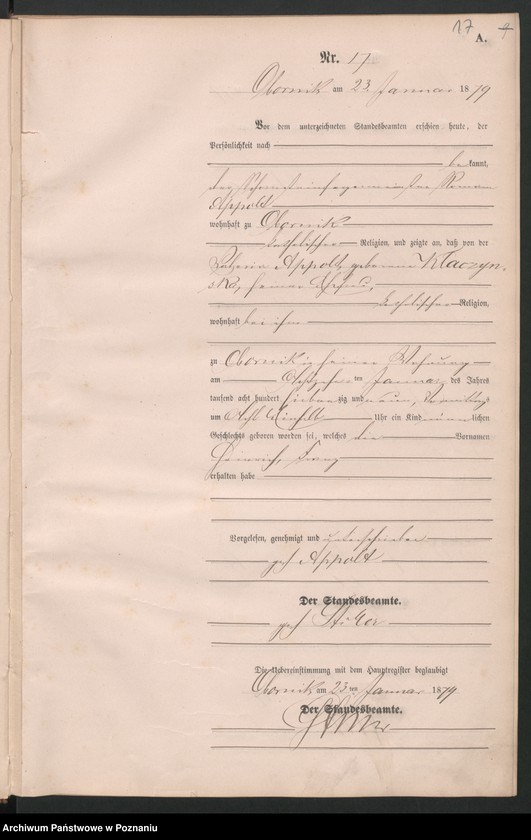 17
A.
Nr. 17
Obornik am 23 Januar 1879
Vor dem unterzeichneten Standesbeamten erschien heute, der
Persönlichkeit nach
bekannt,
der Schornsteinfegermeister Roman
Appolt
wohnhaft zu Obornik
katholischer Religion, und zeigte an, daß von der
Appolt, geborenen Klaczyn-
ska, seiner Ehefrau,
katholischer Religion,
wohnhaft bei ihm
zu Obornik in seiner Wohnung
am ten Januar des Jahres
tausend acht hundert siebenzig und neun, Vormittags
um Acht Uhr ein Kind männlichen
Geschlechts geboren worden sei, welches die Vornamen
Heinrich, Franz
erhalten habe
Vorgelesen, genehmigt und unterschrieben
gez Appolt
Der Standesbeamte.
gez
Die Uebereinstimmung mit dem Hauptregister beglaubigt
Obornik am 23 ten Januar 1879
Der Standesbeamte.
Archiwum Państwowe w Poznaniu